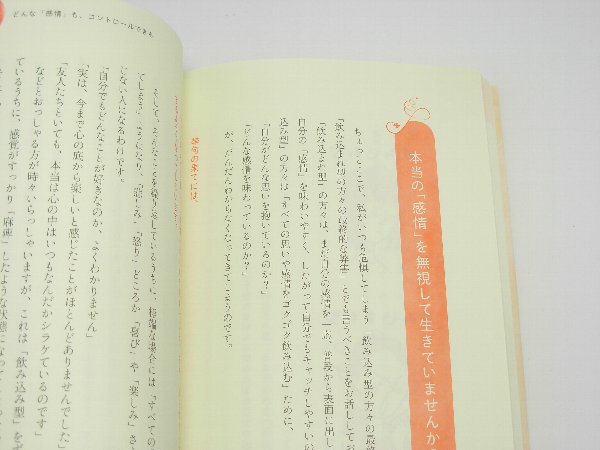 どんな「感情」も、コントロールできる
本当の「感情」を無視して生きていませんか
ちょっとここで、私がいつも危惧してしまう「飲み込み型の方々の最終
「飲み込まれ型の方々の最終的な弊害」とでも言うべきことをお話ししてお
「飲み込まれ型」の方々は、まだ自分の感情を一応、普段から表面に出し
自分の「感情」を味わいやすく、したがって自分でもキャッチしやすいの
込み型」の方々は「すべての思いや感情をゴクゴク飲み込む」ために、
「自分がどんな思いを抱いているのか?」
「どんな感情を味わっているのか?」
が、だんだんわからなくなってきてしまうのです。
そして、そんなことを繰り返しているうちに、極端な場合には「すべての
てしまう」ようになり、「悲しみ」「怒り」どころか「喜び」や「楽しみ」さえ
じない人になるわけです。
「自分でもどんなことが好きなのか、よくわかりません」
「実は、今まで心の底から楽しいと感じたことがほとんどありませんでした」
「友人たちといても、本当は心の中はいつもなんだかシラケているのです」
などとおっしゃる方が時々いらっしゃいますが、これは「飲み込み型」をず
ているうちに、感覚がすっかり「麻痺」したような状態になって